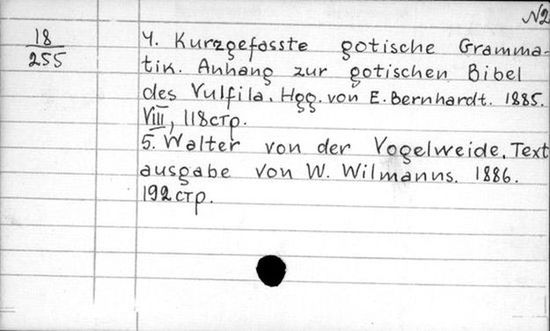 N2
18
255
4. Kurzgefasste gotische Gramma-
tik. Anhang zur gotischen Bibel
des Vulfila. Hgg. von E. Bernhardt. 1885.
VIII, 118 стр.
5. Walter von der Vogelweide. Text
ausgabe von W. Wilmanns. 1886.
192 стр.